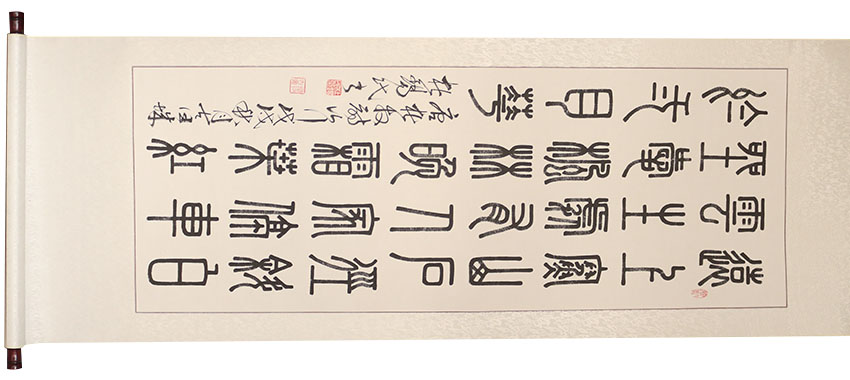 遠上寒山石徑斜白
雲生處有人家停車
坐愛楓林晚霜葉紅
於二月花
唐杜牧詩山行戊戌